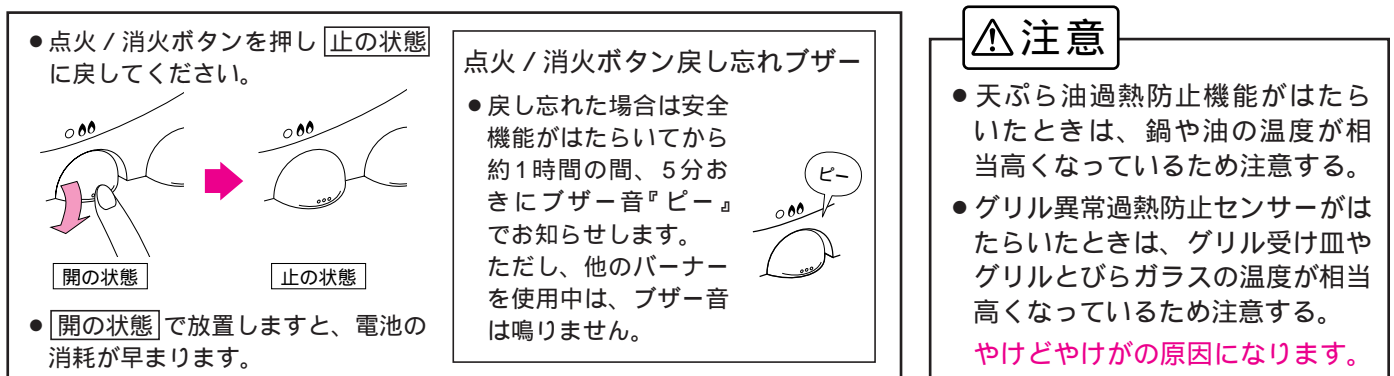 ●点火/消火ボタンを押し 止の状態
に戻してください。
開の状態
止の状態
●開の状態で放置しますと、電池の
消耗が早まります。
点火/消火ボタン戻し忘れブザー
●戻し忘れた場合は安全
機能がはたらいてから
約1時間の間、5分お
きにブザー音『ピー』
でお知らせします。
ただし、他のバーナー
を使用中は、ブザー音
は鳴りません。
ピー
注意
●天ぷら油過熱防止機能がはたら
いたときは、鍋や油の温度が相
当高くなっているため注意する。
●グリル異常過熱防止センサーがは
たらいたときは、グリル受け皿や
グリルとびらガラスの温度が相当
高くなっているため注意する。
やけどやけがの原因になります。